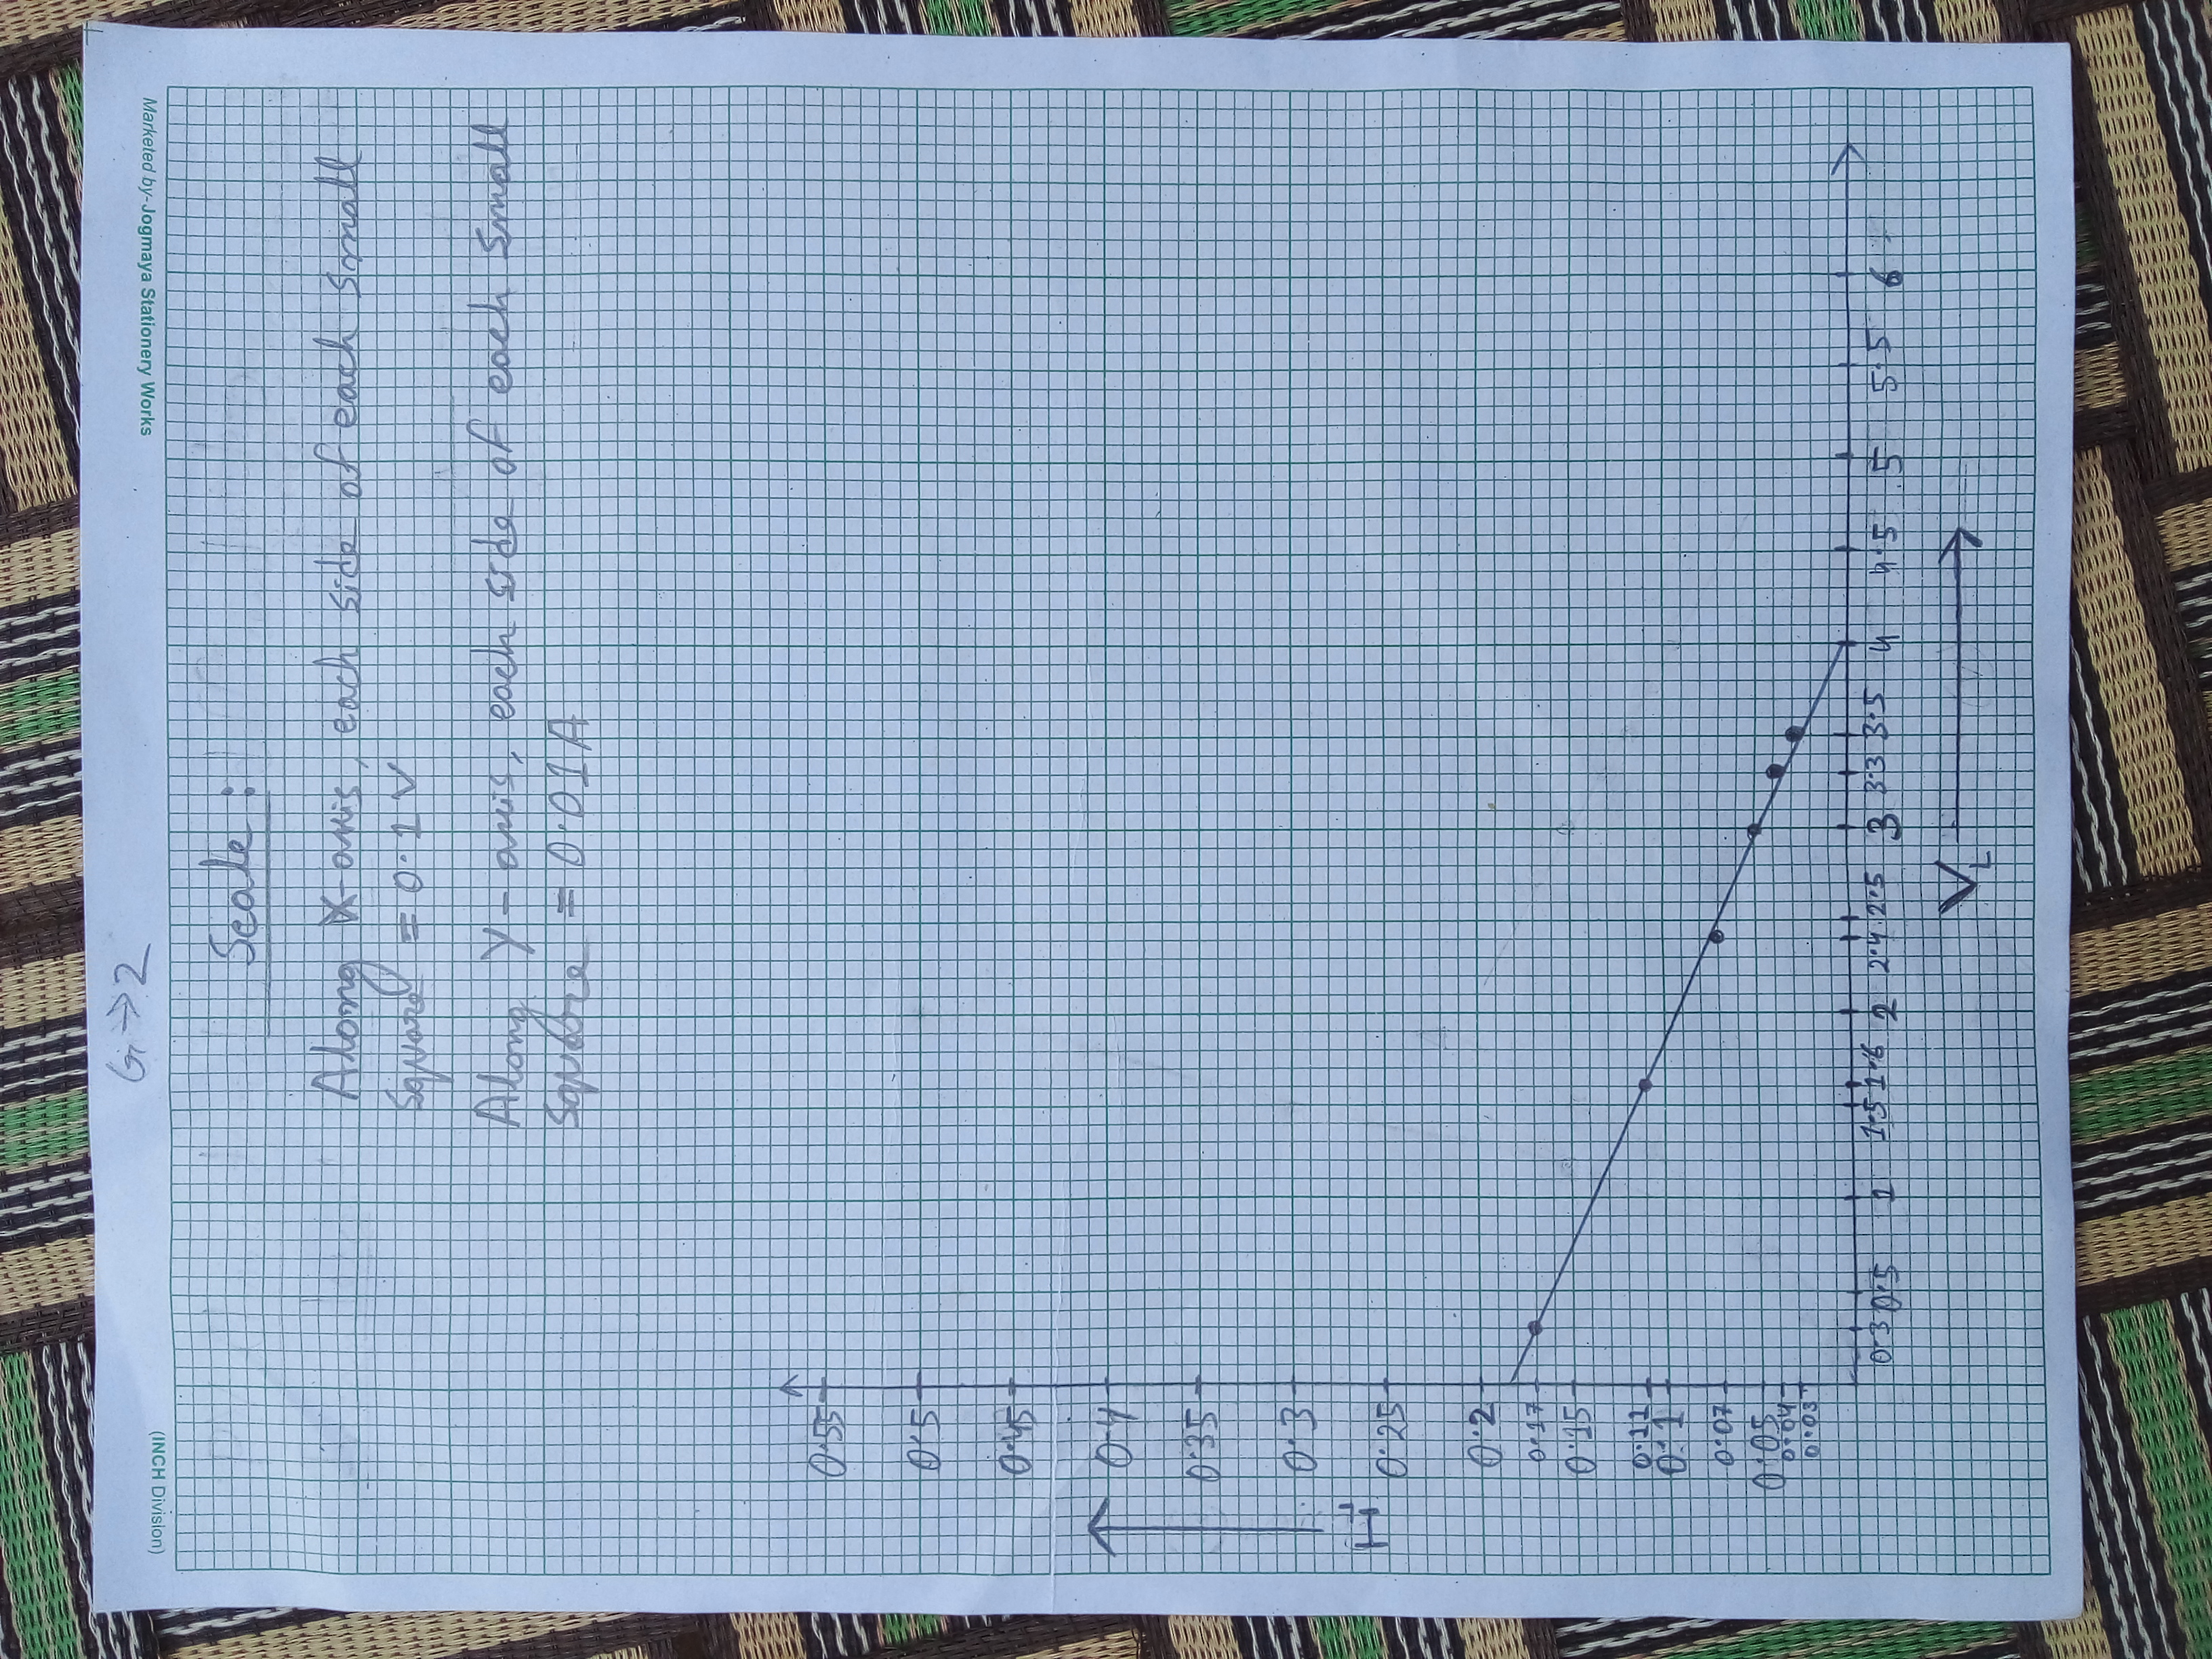 G → 2
(INCH Division)
Marketed by-Jogmaya Stationery Works
Scale :
Along X-axis, each side of each small
square = 0.1 V
Along Y-axis, each side of each small
square = 0.01 A
0.55
0.5
0.45
0.4
0.35
0.3
0.25
0.2
0.17
0.15
0.11
0.1
0.07
0.05
0.04
0.03
I_L
0.3 0.5 1 1.5 1.6 2 2.4 2.5 3 3.3 3.5 4 4.5 5 5.5 6
V_L